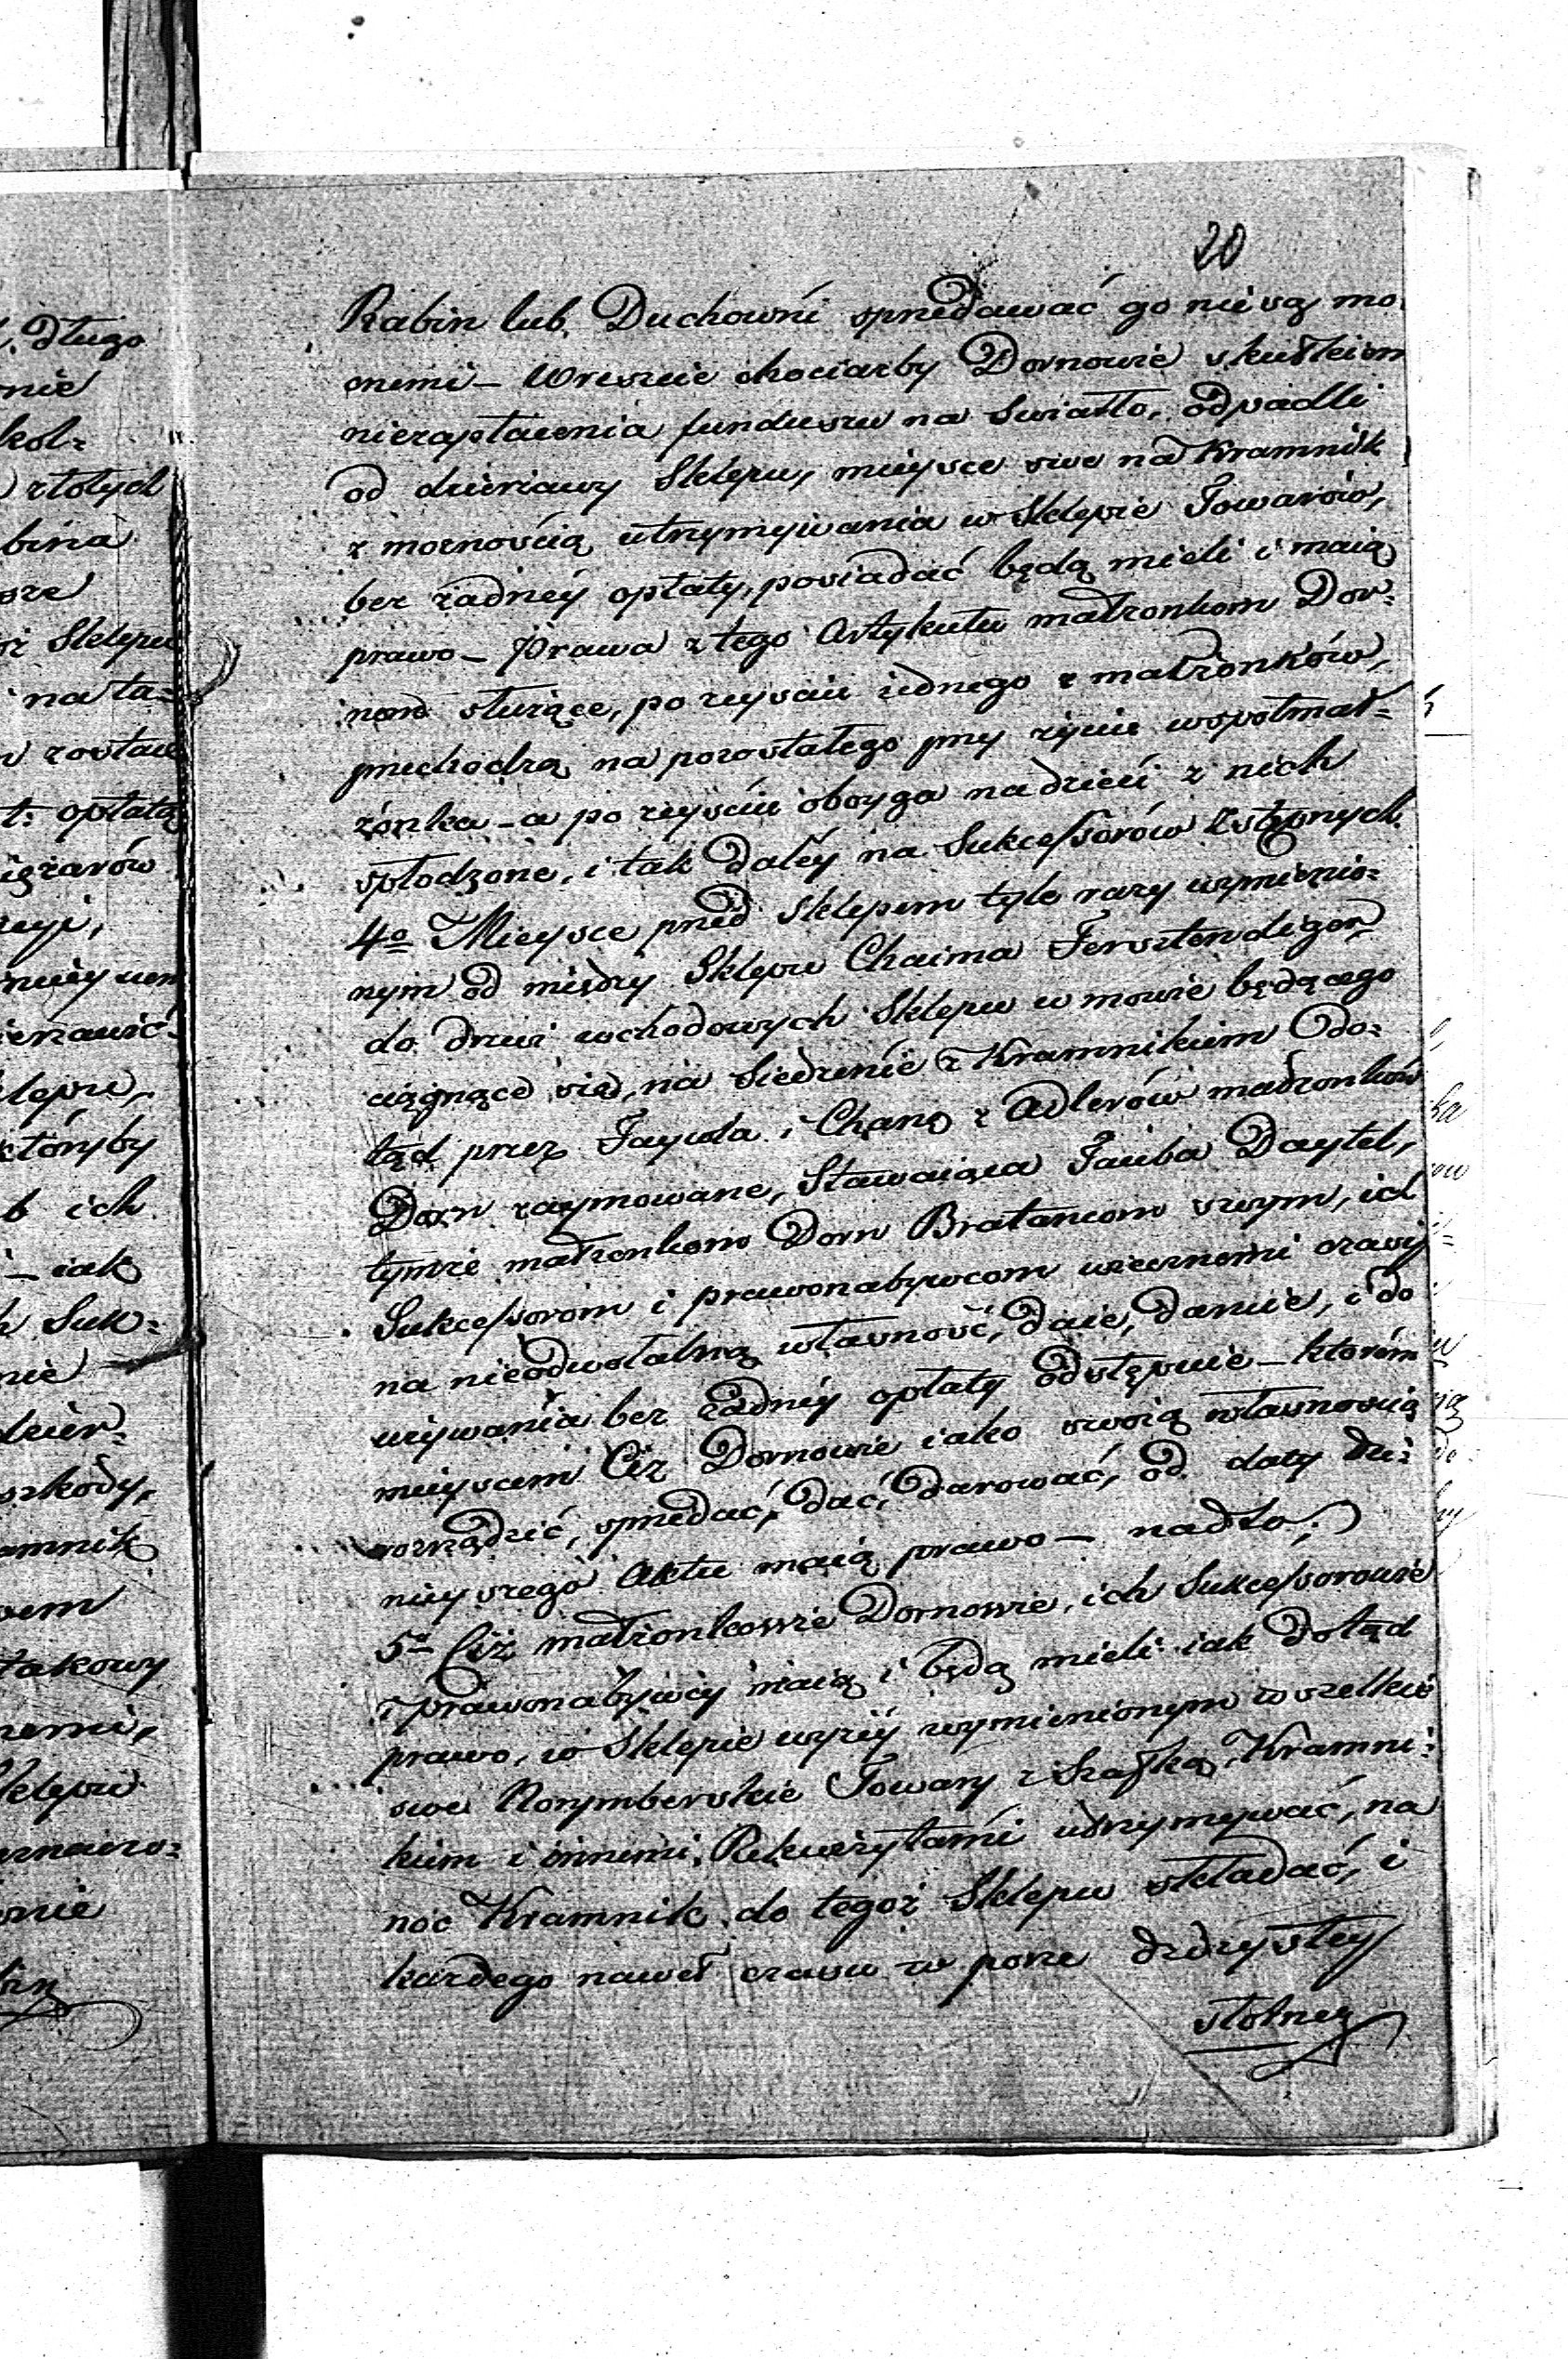 20
Rabin lub Duchowni sprzedawać go nie są mo
cnemi – Wreszcie chociażby Dornowie skutkiem
niezapłacenia funduszu na Swiatło, odpadli
od dzierżawy Sklepu, mieysce swe na Kramnik
z możnością utrzymywania w Sklepie Towarów,
bez żadnéy opłaty, posiadać będą mieli i maią
prawo – Prawa z tego Artykułu małżonkom Dor=
nom służące, po zeyściu iednego z małżonków,
przechodzą na pozostałego przy życiu wspołmał=
żonka – a po zeyściu oboyga na dzieci z nich
spłodzone, i tak daléy na Sukcessorów Zstępnych.
4o Mieysce przed Sklepem tyle razy wymienio=
nym od miedzy Sklepu Chaima Fersztendiger,
do drzwi wchodowych Sklepu w mowie będącego
ciągnące się, na Siedzenie z Kramnikiem Odo=
tąd przez Faywla i Chanę z Adlerów małżonków
Dorn zaymowane, Stawaiąca Tauba Daytel,
tymże małżonkom Dorn Bratancom swym, ich
Sukcessorom i prawonabywcom wiecznemi czasy
na nieodwołalną własność, daie, daruie, i do
używania bez żadnéy opłaty odstępuie – którém
mieyscem Ciż Dornowie iako swoią własnością
rozrządzić, sprzedać, dać, darować, od daty dzi=
sieyszego Aktu maią prawo – nadto,
5o Ciż małżonkowie Dornowie, ich Sukcessorowie
i Prawonabywcy maią i będą mieli iak dotąd
prawo, w Sklepie wyżéy wymienionym wszelkie
swe Norymberskie Towary z Szafką, Kramni=
kiem i innemi Rekwizytami utrzymywać, na
noc Kramnik do tegoż Sklepu składać, i
każdego nawet czasu w porze dżdżystey
słotnéy